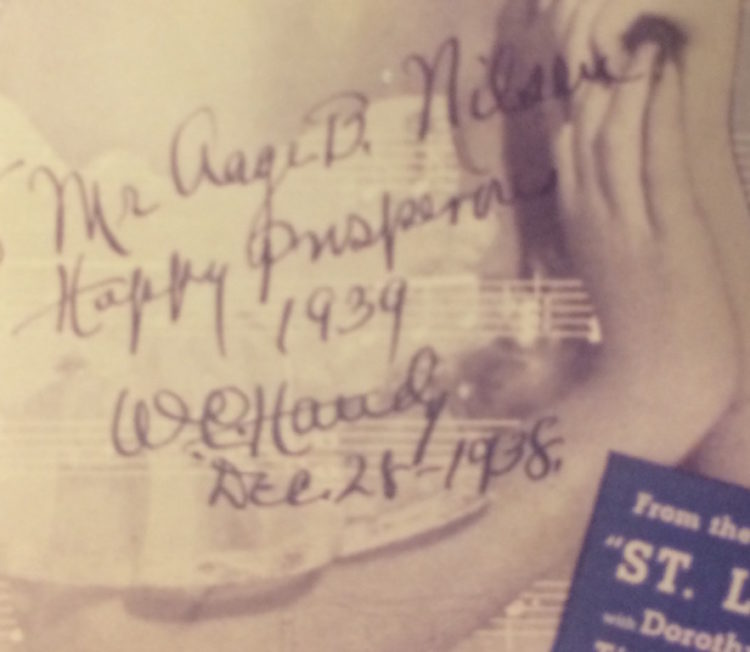 Mr Aage B. Nilsen
Happy Prosperous
1939
W.C. Handy
Dec. 28-1938.
From the
"ST. L
with Doroth